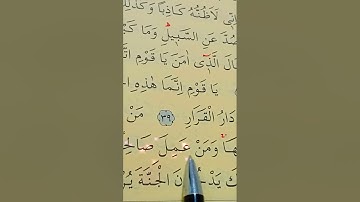 لَأَظُنُّهُ كَاذِبًا وَكَذٰلِكَ
عَنِ السَّبِيلِ وَمَا
الَّذِى اٰمَنَ يَا قَوْمِ
يَا قَوْمِ اِنَّمَا هٰذِهِ
دَارُ الْقَرَارِ ﴿٣٩﴾ مَنْ
وَمَنْ عَمِلَ صَالِحًا
يَدْخُلُونَ الْجَنَّةَ